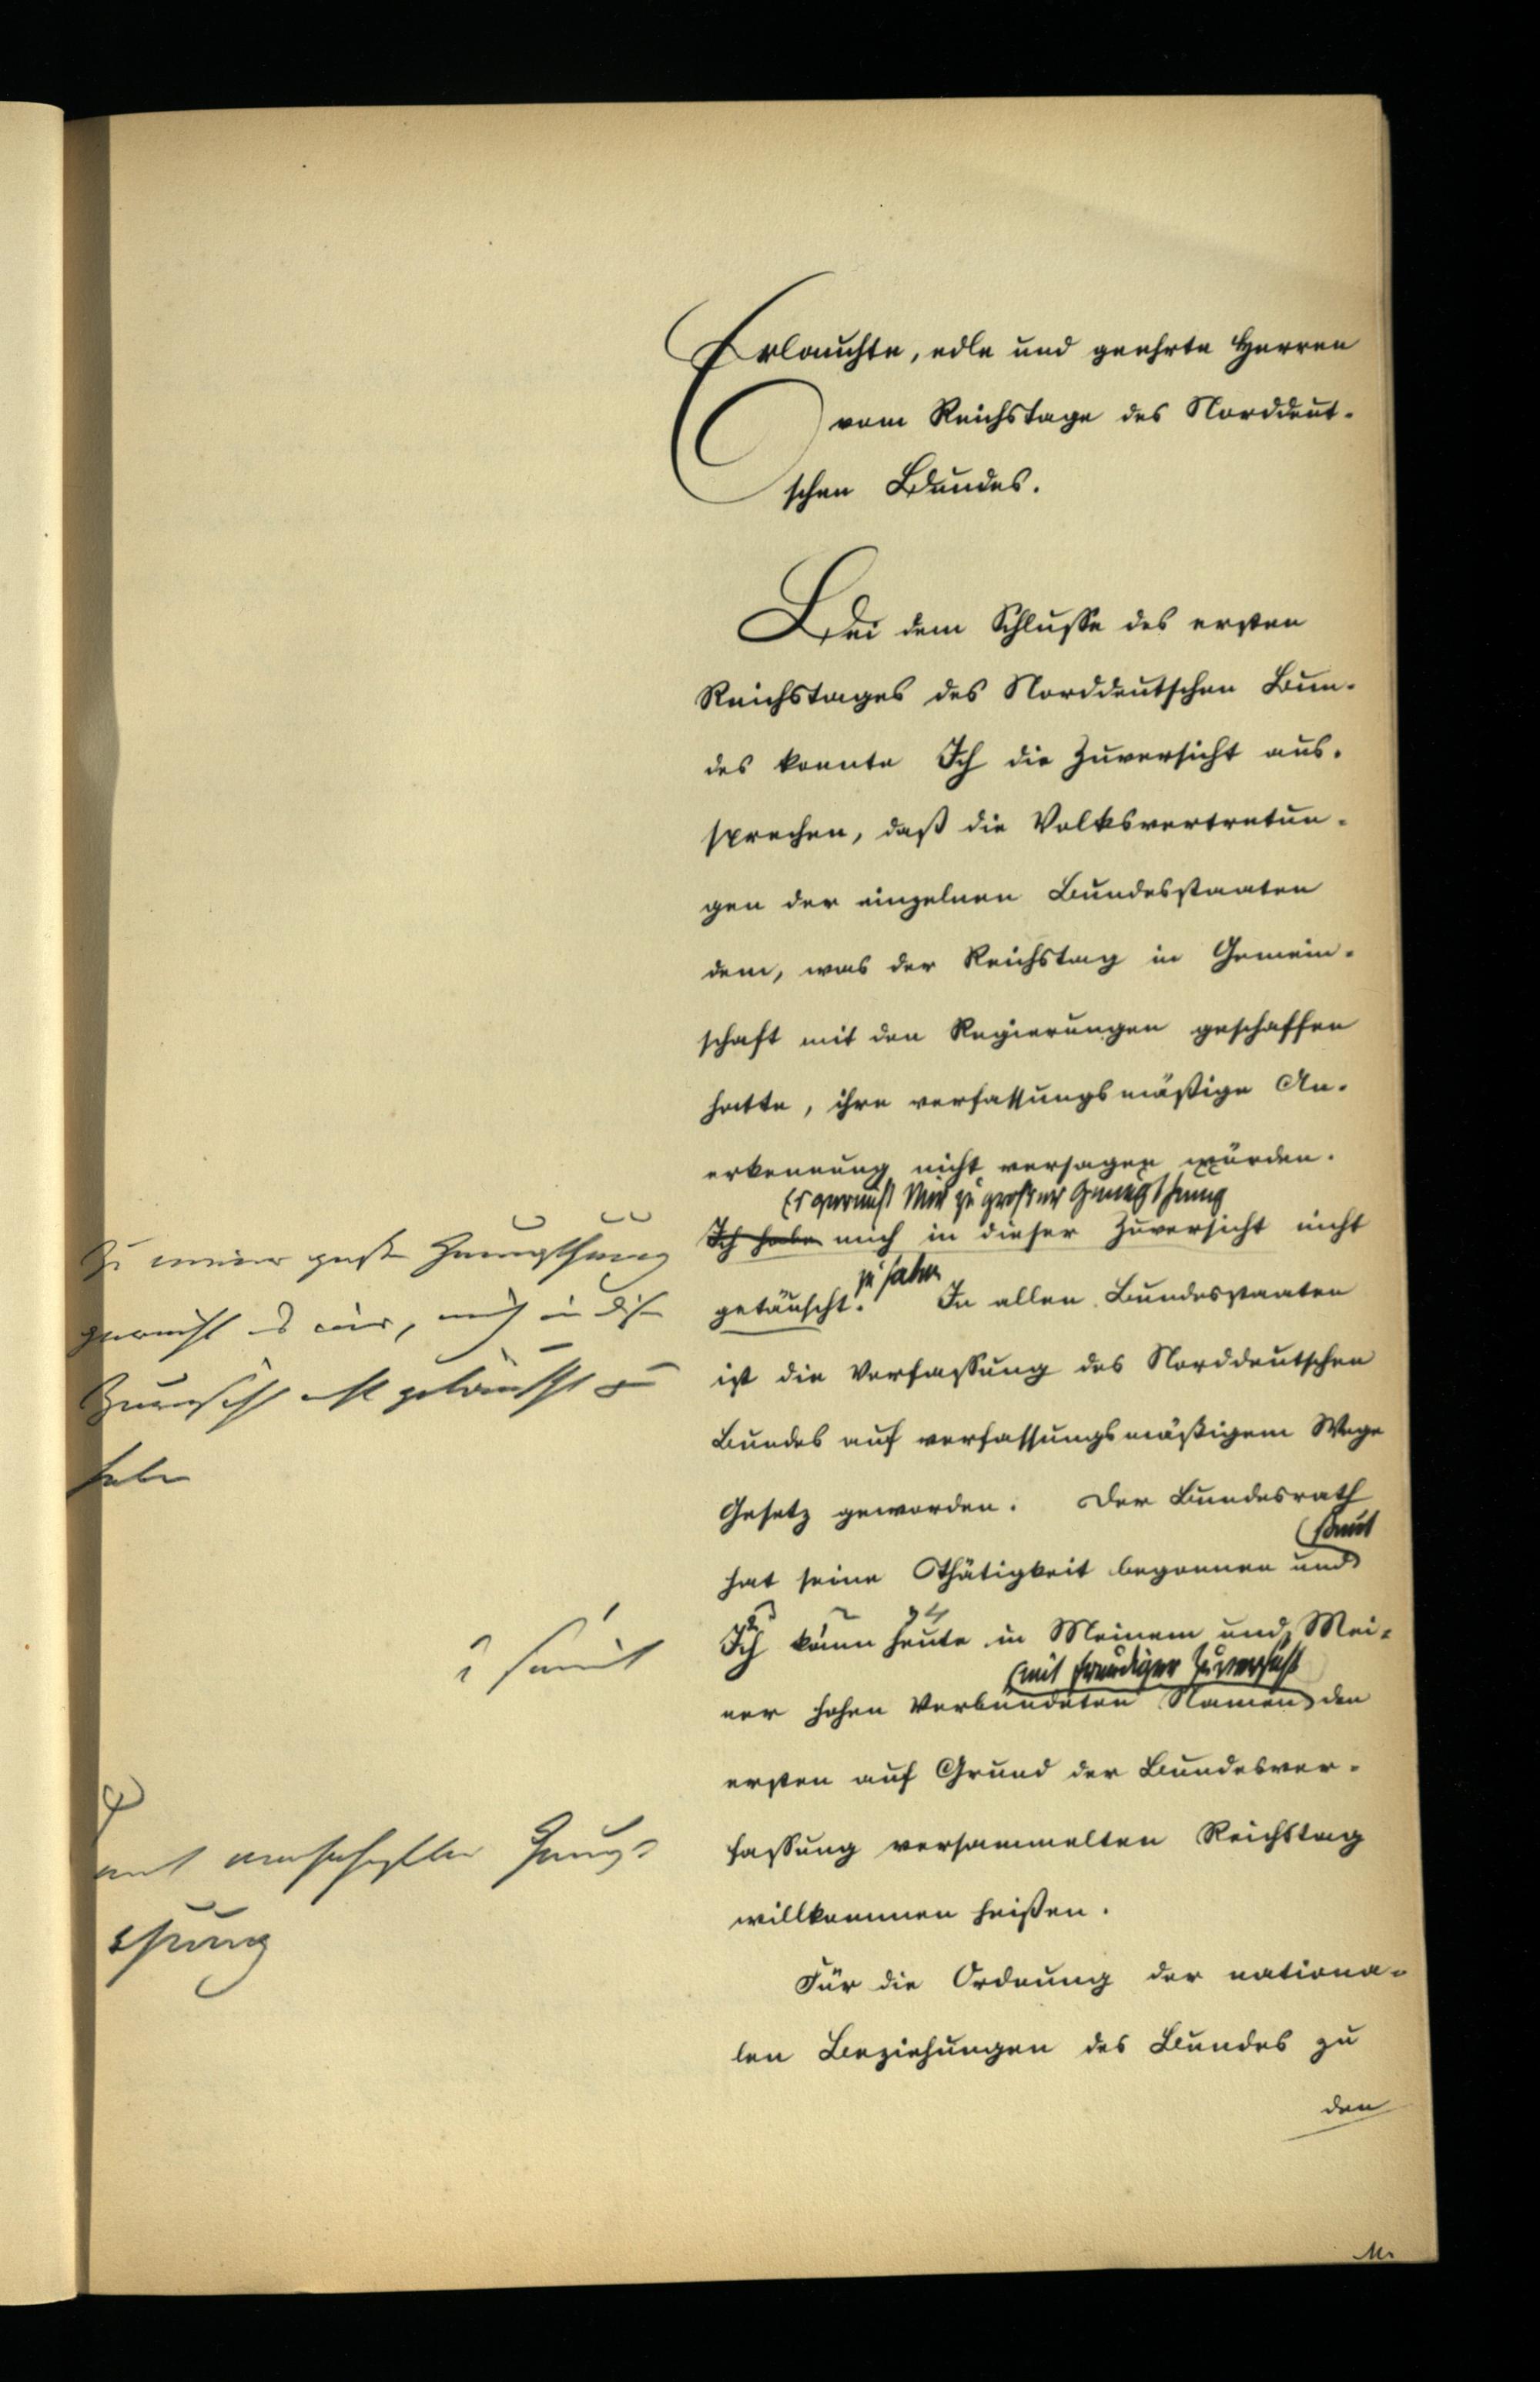 Erlauchte, edle und geehrte Herren
vom Reichstage des Norddeut-
schen Bundes.
Bei dem Schlusse des ersten
Reichstages des Norddeutschen Bun-
des konnte Ich die Zuversicht aus-
sprechen, daß die Volksvertretun-
gen der einzelnen Bundesstaaten
dem, was der Reichstag in Gemein-
schaft mit den Regierungen geschaffen
hatte, ihre verfassungsmäßige An-
erkennung nicht versagen würden.
Es gereicht Mir zu großer Genugthuung
Ich habe mich in dieser Zuversicht nicht
zu haben
getäuscht. In allen Bundesstaaten
ist die Verfassung des Norddeutschen
Bundes auf verfassungsmäßigem Wege
Gesetz geworden. Der Bundesrath
somit
hat seine Thätigkeit begonnen und
Ich kann heute in Meinem und Mei-
mit freudiger Zuversicht
ner hohen Verbündeten Namen den
ersten auf Grund der Bundesver-
fassung versammelten Reichstag
willkommen heißen.
Für die Ordnung der nationa-
len Beziehungen des Bundes zu
den
Zu meiner großen Genugthuung
gereicht es mir, mich in dieser
Zuversicht nicht getäuscht zu
haben
somit
mit